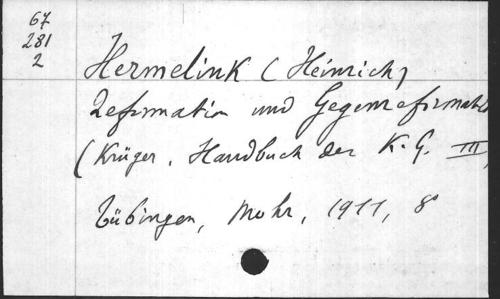 67
281
2
Hermelink (Heinrich)
Reformation und Gegenreformation
(Krüger, Handbuch der K.G. III)
Tübingen, Mohr, 1911, 8°